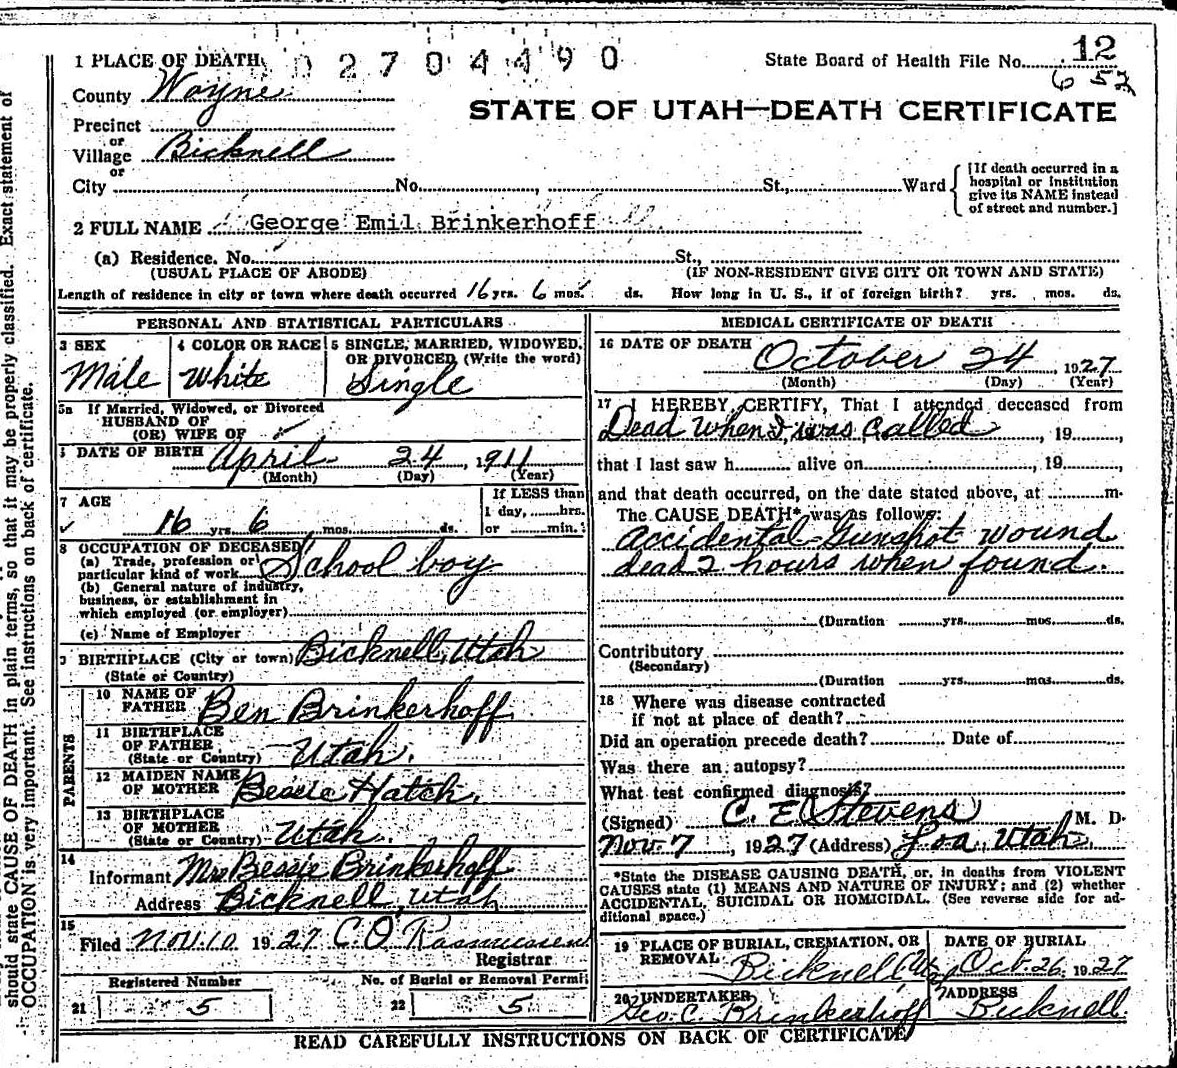 1 PLACE OF DEATH
02704490
State Board of Health File No. 12
652
County Wayne
STATE OF UTAH—DEATH CERTIFICATE
Precinct
or
Village Bicknell
or
City No. , St., Ward
[If death occurred in a hospital or institution give its NAME instead of street and number.]
2 FULL NAME George Emil Brinkerhoff
(a) Residence. No. St.,
(USUAL PLACE OF ABODE) (IF NON-RESIDENT GIVE CITY OR TOWN AND STATE)
Length of residence in city or town where death occurred 16 yrs. 6 mos. ds. How long in U. S., if of foreign birth? yrs. mos. ds.
PERSONAL AND STATISTICAL PARTICULARS
3 SEX
Male
4 COLOR OR RACE
White
5 SINGLE, MARRIED, WIDOWED,
OR DIVORCED (Write the word)
Single
5a If Married, Widowed, or Divorced
HUSBAND OF
(OR) WIFE OF
DATE OF BIRTH April 24, 1911
(Month) (Day) (Year)
7 AGE
16 yrs. 6 mos. ds.
If LESS than
1 day, hrs.
or min.
8 OCCUPATION OF DECEASED
(a) Trade, profession or
particular kind of work School boy
(b) General nature of industry,
business, or establishment in
which employed (or employer)
(c) Name of Employer
9 BIRTHPLACE (City or town) Bicknell, Utah
(State or Country)
PARENTS
10 NAME OF
FATHER Ben Brinkerhoff
11 BIRTHPLACE
OF FATHER
(State or Country) Utah.
12 MAIDEN NAME
OF MOTHER Bessie Hatch.
13 BIRTHPLACE
OF MOTHER
(State or Country) Utah.
14
Informant Mrs Bessie Brinkerhoff
Address Bicknell, Utah
15
Filed Nov. 10 1927 C. O. Rasmussen
Registrar
Registered Number No. of Burial or Removal Permit
21 5 22 5
MEDICAL CERTIFICATE OF DEATH
16 DATE OF DEATH October 24, 1927
(Month) (Day) (Year)
17 I HEREBY CERTIFY, That I attended deceased from
Dead when I was called , 19 ,
that I last saw h alive on , 19 ,
and that death occurred, on the date stated above, at m.
The CAUSE DEATH* was as follows:
Accidental Gunshot wound
dead 2 hours when found.
(Duration yrs. mos. ds.
Contributory
(Secondary)
(Duration yrs. mos. ds.
18 Where was disease contracted
if not at place of death?
Did an operation precede death? Date of
Was there an autopsy?
What test confirmed diagnosis?
(Signed) C. E Stevens M. D.
Nov. 7, 1927 (Address) Loa, Utah.
*State the DISEASE CAUSING DEATH, or, in deaths from VIOLENT
CAUSES state (1) MEANS AND NATURE OF INJURY; and (2) whether
ACCIDENTAL, SUICIDAL OR HOMICIDAL. (See reverse side for ad-
ditional space.)
19 PLACE OF BURIAL, CREMATION, OR
REMOVAL Bicknell
DATE OF BURIAL
Oct. 26, 1927
20 UNDERTAKER
Geo. C. Brinkerhoff
ADDRESS
Bicknell.
READ CAREFULLY INSTRUCTIONS ON BACK OF CERTIFICATE
should state CAUSE OF DEATH in plain terms, so that it may be properly classified. Exact statement of
OCCUPATION is very important. See instructions on back of certificate.